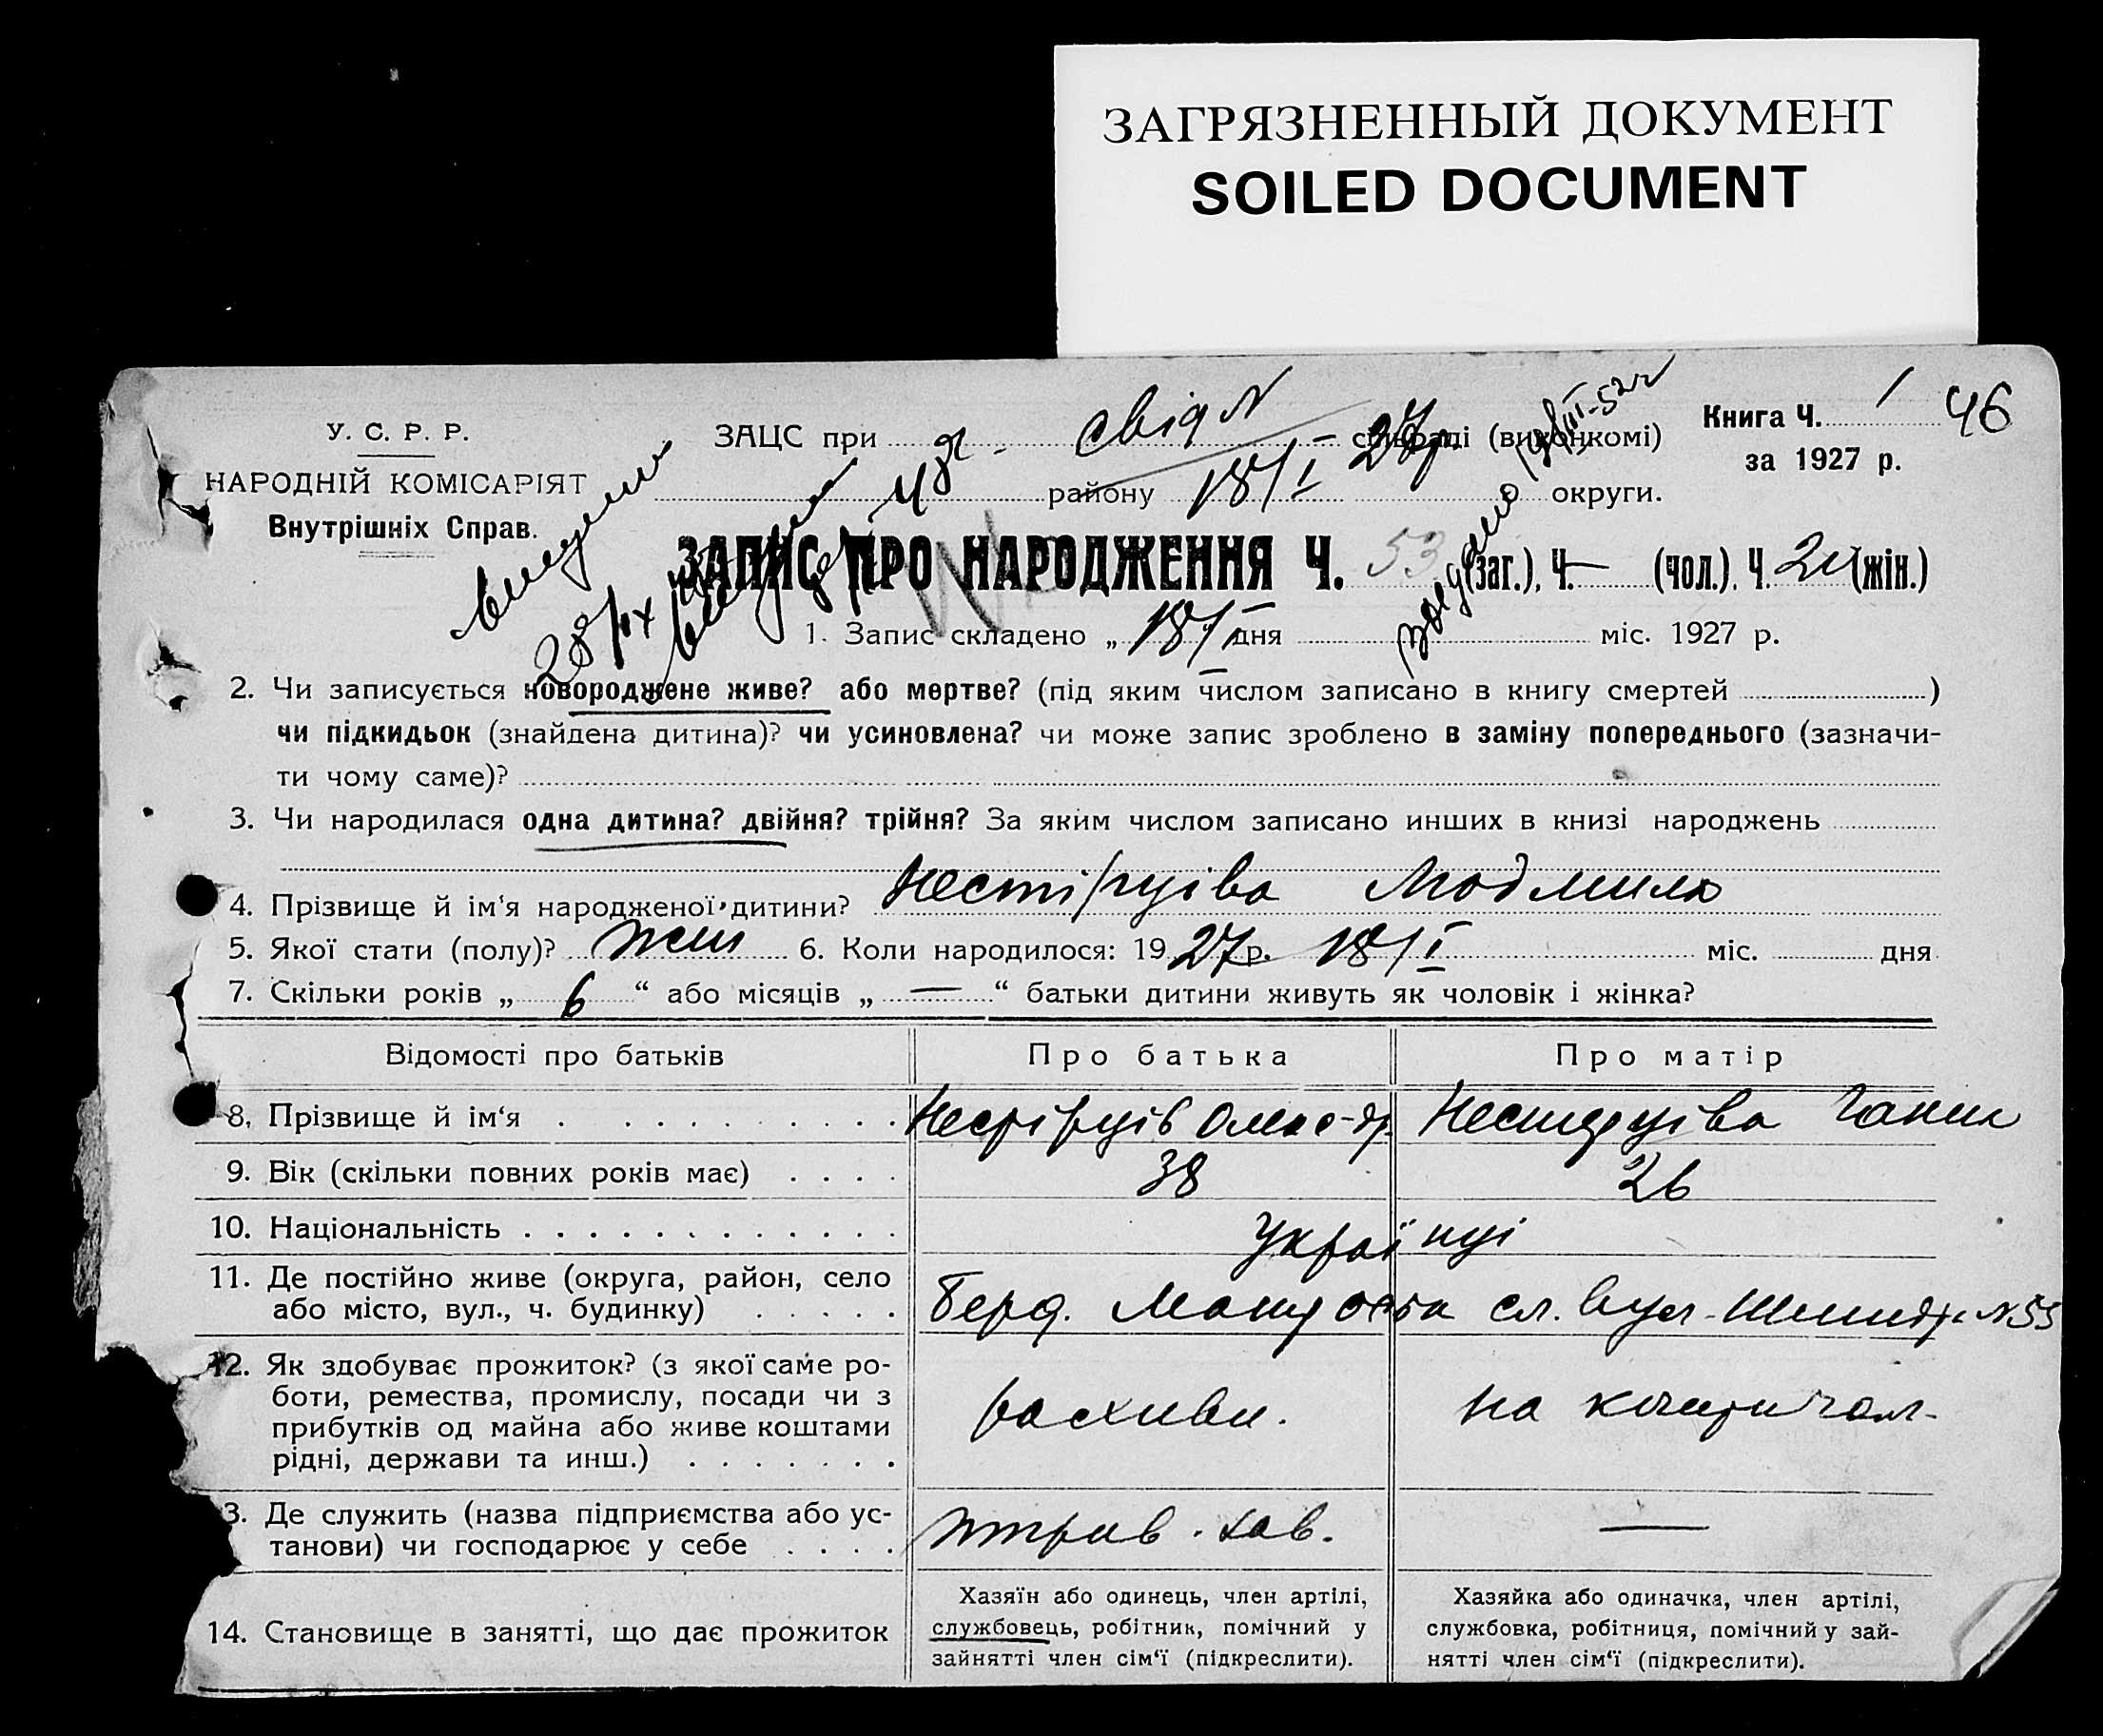 ЗАГРЯЗНЕННЫЙ ДОКУМЕНТ
SOILED DOCUMENT
У. С. Р. Р.
НАРОДНІЙ КОМІСАРІЯТ
Внутрішніх Справ.
Книга Ч. 1 46
за 1927 р.
ЗАЦС при свід N (виконкомі)
району 18/I 27р. округи.
ЗАПИС ПРО НАРОДЖЕННЯ Ч. 53 (заг.), Ч. — (чол.). Ч. (жін.)
1. Запис складено „ 18/I “ дня міс. 1927 р.
2. Чи записується новороджене живе? або мертве? (під яким числом записано в книгу смертей )
чи підкидьок (знайдена дитина)? чи усиновлена? чи може запис зроблено в заміну попереднього (зазначи-
ти чому саме)?
3. Чи народилася одна дитина? двійня? трійня? За яким числом записано инших в книзі народжень
4. Прізвище й ім'я народженої дитини? Людмила
5. Якої стати (полу)? жін 6. Коли народилося: 19 27 р. 18/I міс. дня
7. Скільки років „ 6 “ або місяців „ — “ батьки дитини живуть як чоловік і жінка?
Відомості про батьків
Про батька
Про матір
8. Прізвище й ім‘я
Ганна
9. Вік (скільки повних років має)
38
26
10. Національність
Українці
11. Де постійно живе (округа, район, село
або місто, вул., ч. будинку)
Берд. сл. вул. N 53
12. Як здобуває прожиток? (з якої саме ро-
боти, ремества, промислу, посади чи з
прибутків од майна або живе коштами
рідні, держави та инш.)
на
13. Де служить (назва підприємства або ус-
танови) чи господарює у себе
—
14. Становище в занятті, що дає прожиток
Хазяїн або одинець, член артілі,
службовець, робітник, помічний у
зайнятті член сім‘ї (підкреслити).
Хазяйка або одиначка, член артілі,
службовка, робітниця, помічний у зай-
нятті член сім‘ї (підкреслити).